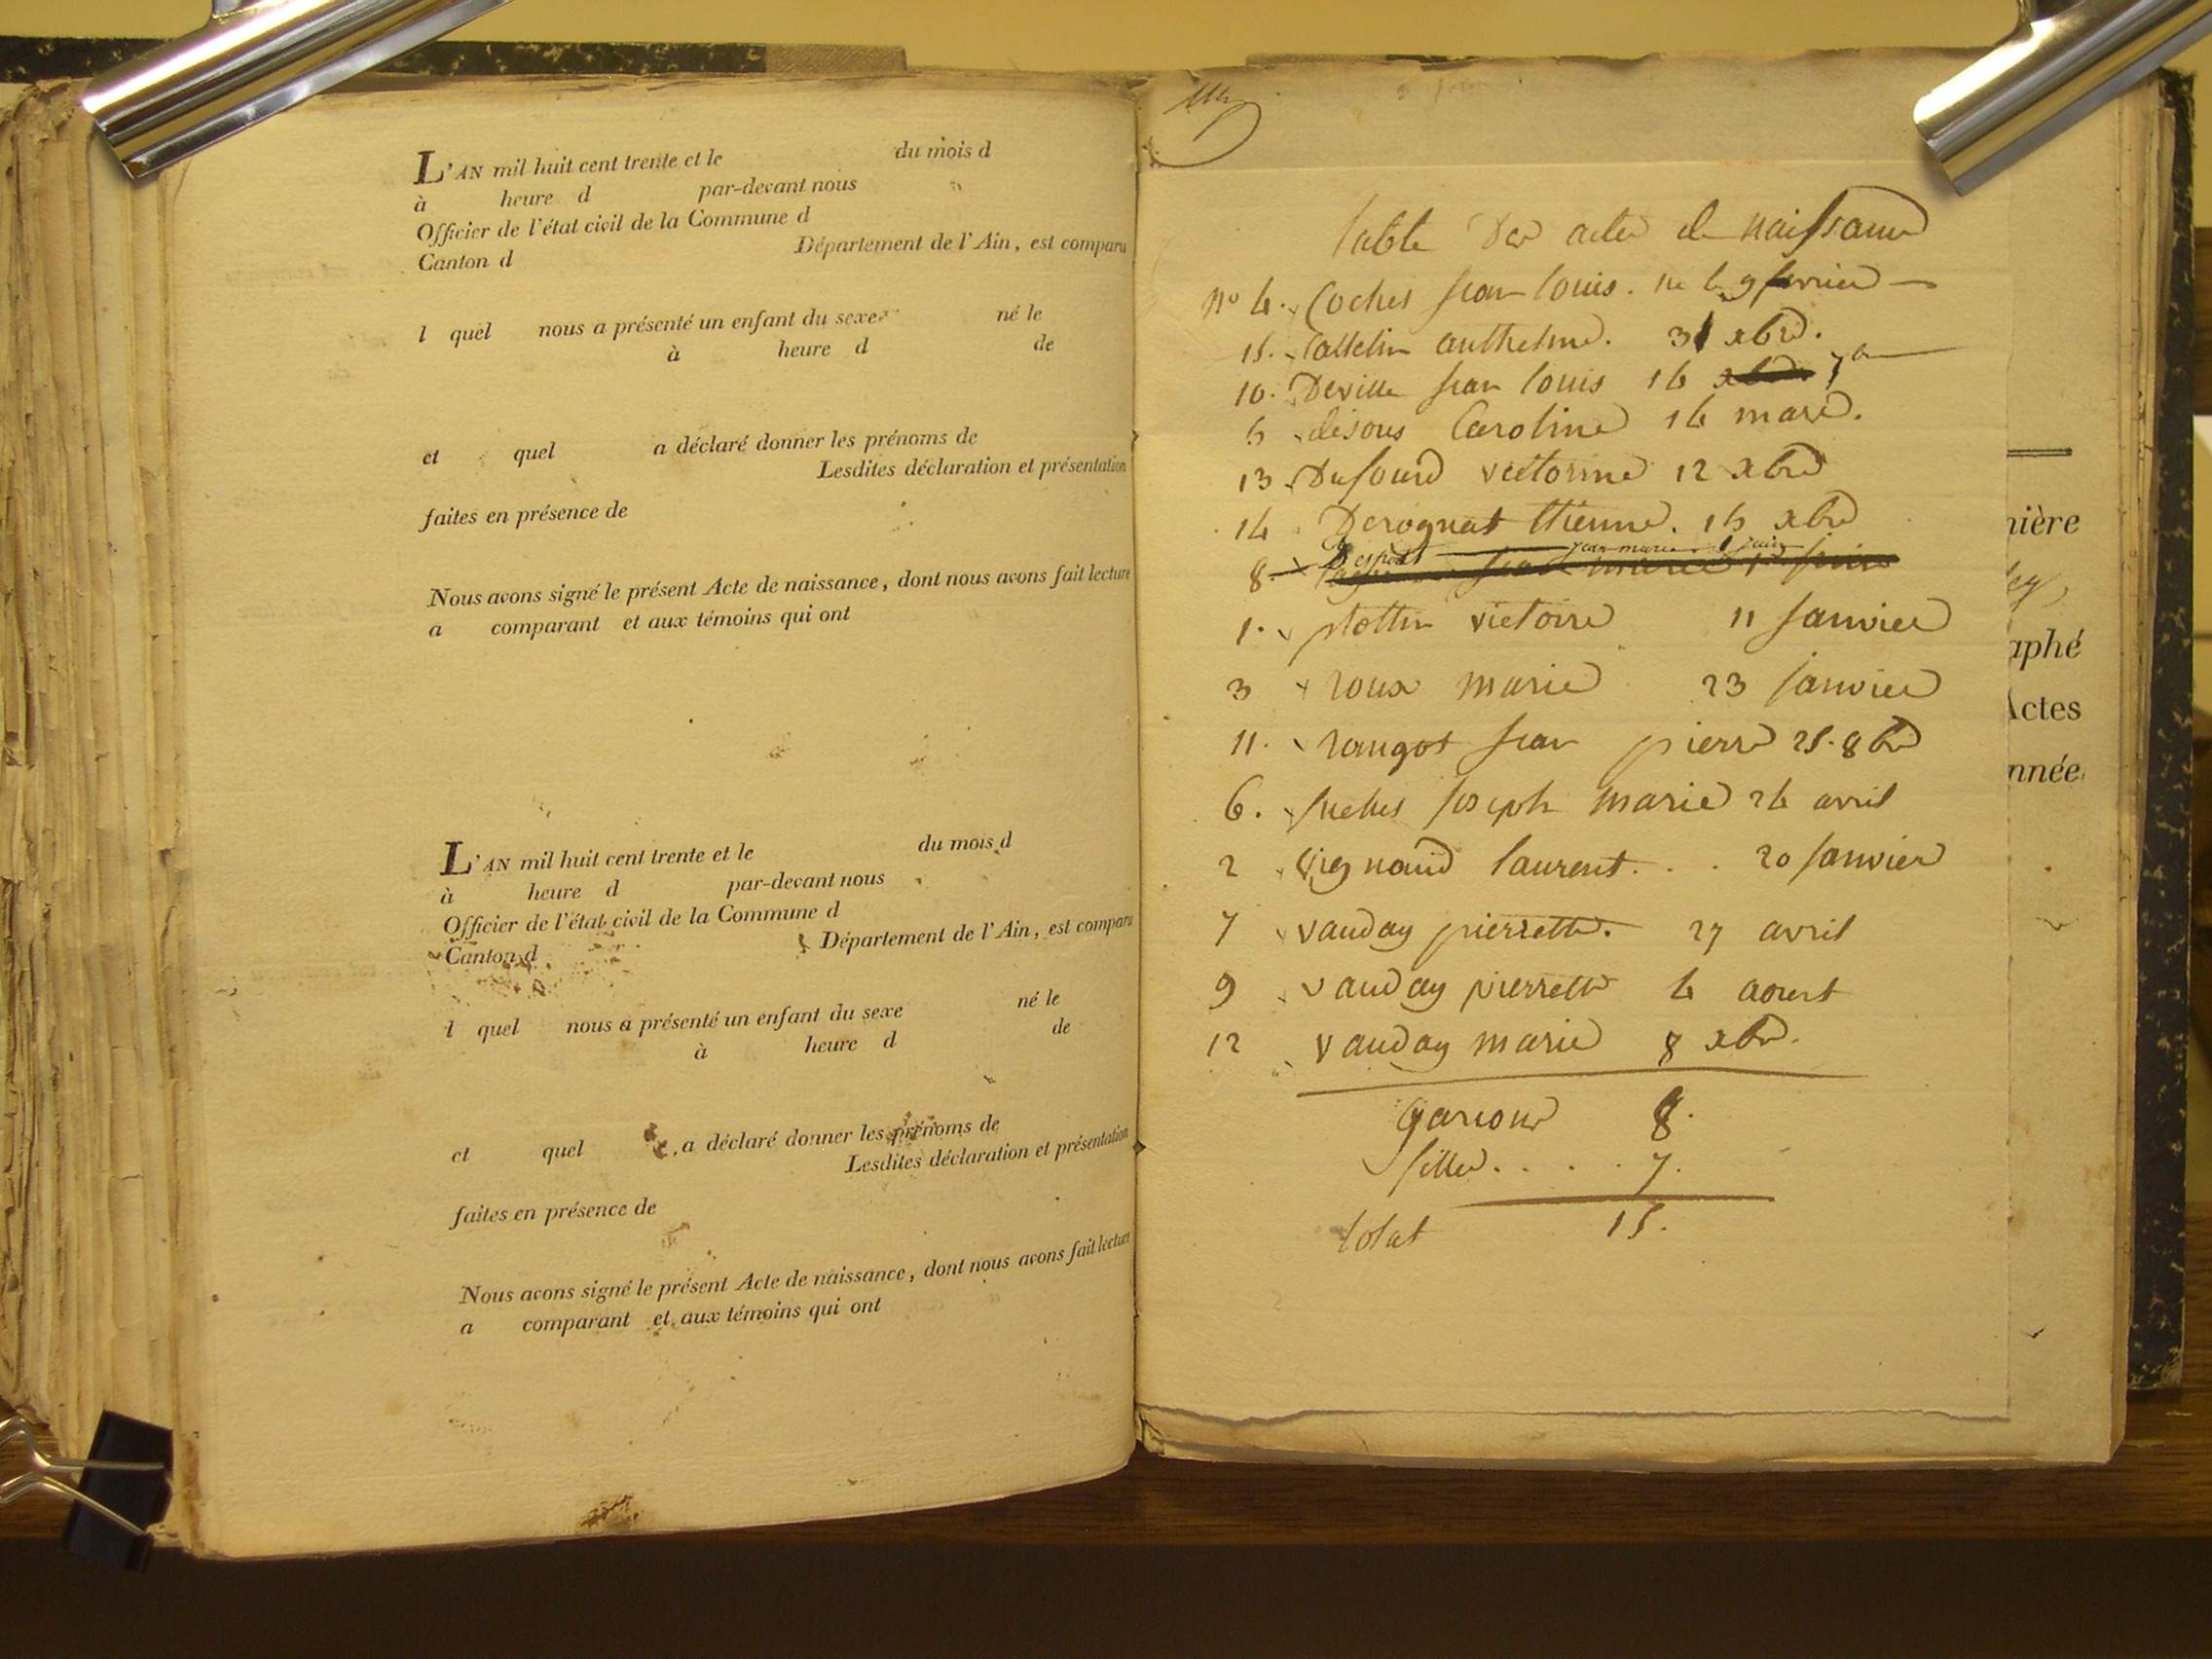 L'AN mil huit cent trente et le du mois d
à heure d par-devant nous
Officier de l'état civil de la Commune d
Canton d Département de l'Ain, est comparu
l quel nous a présenté un enfant du sexe né le
à heure d de
et quel a déclaré donner les prénoms de
Lesdites déclaration et présentation
faites en présence de
Nous avons signé le présent Acte de naissance, dont nous avons fait lecture
a comparant et aux témoins qui ont
L'AN mil huit cent trente et le du mois d
à heure d par-devant nous
Officier de l'état civil de la Commune d
Canton d Département de l'Ain, est comparu
l quel nous a présenté un enfant du sexe né le
à heure d de
et quel a déclaré donner les prénoms de
Lesdites déclaration et présentation
faites en présence de
Nous avons signé le présent Acte de naissance, dont nous avons fait lecture
a comparant et aux témoins qui ont
table des actes de naissance
No 4. Coches jean louis. né le 9 fevrier
15. anthelme. 31 xbre.
10. Deville jean louis 16
5 Caroline 14 mars.
13 Dufour victorine 12 xbre
14 Derognat 15 xbre
8. jean marie 1 juin
1. plottin victoire 11 janvier
3 roux marie 23 janvier
11. rougot jean pierre 25. 8bre
6. joseph marie 24 avril
2 Vignand laurent. . . 20 janvier
7 vauday pierrette. 27 avril
9 vauday pierrette 4 aoust
12 vauday marie 8 xbre.
garcons 8.
filles. . . . . 7.
total 15.
nière
ey,
aphé
Actes
nnée